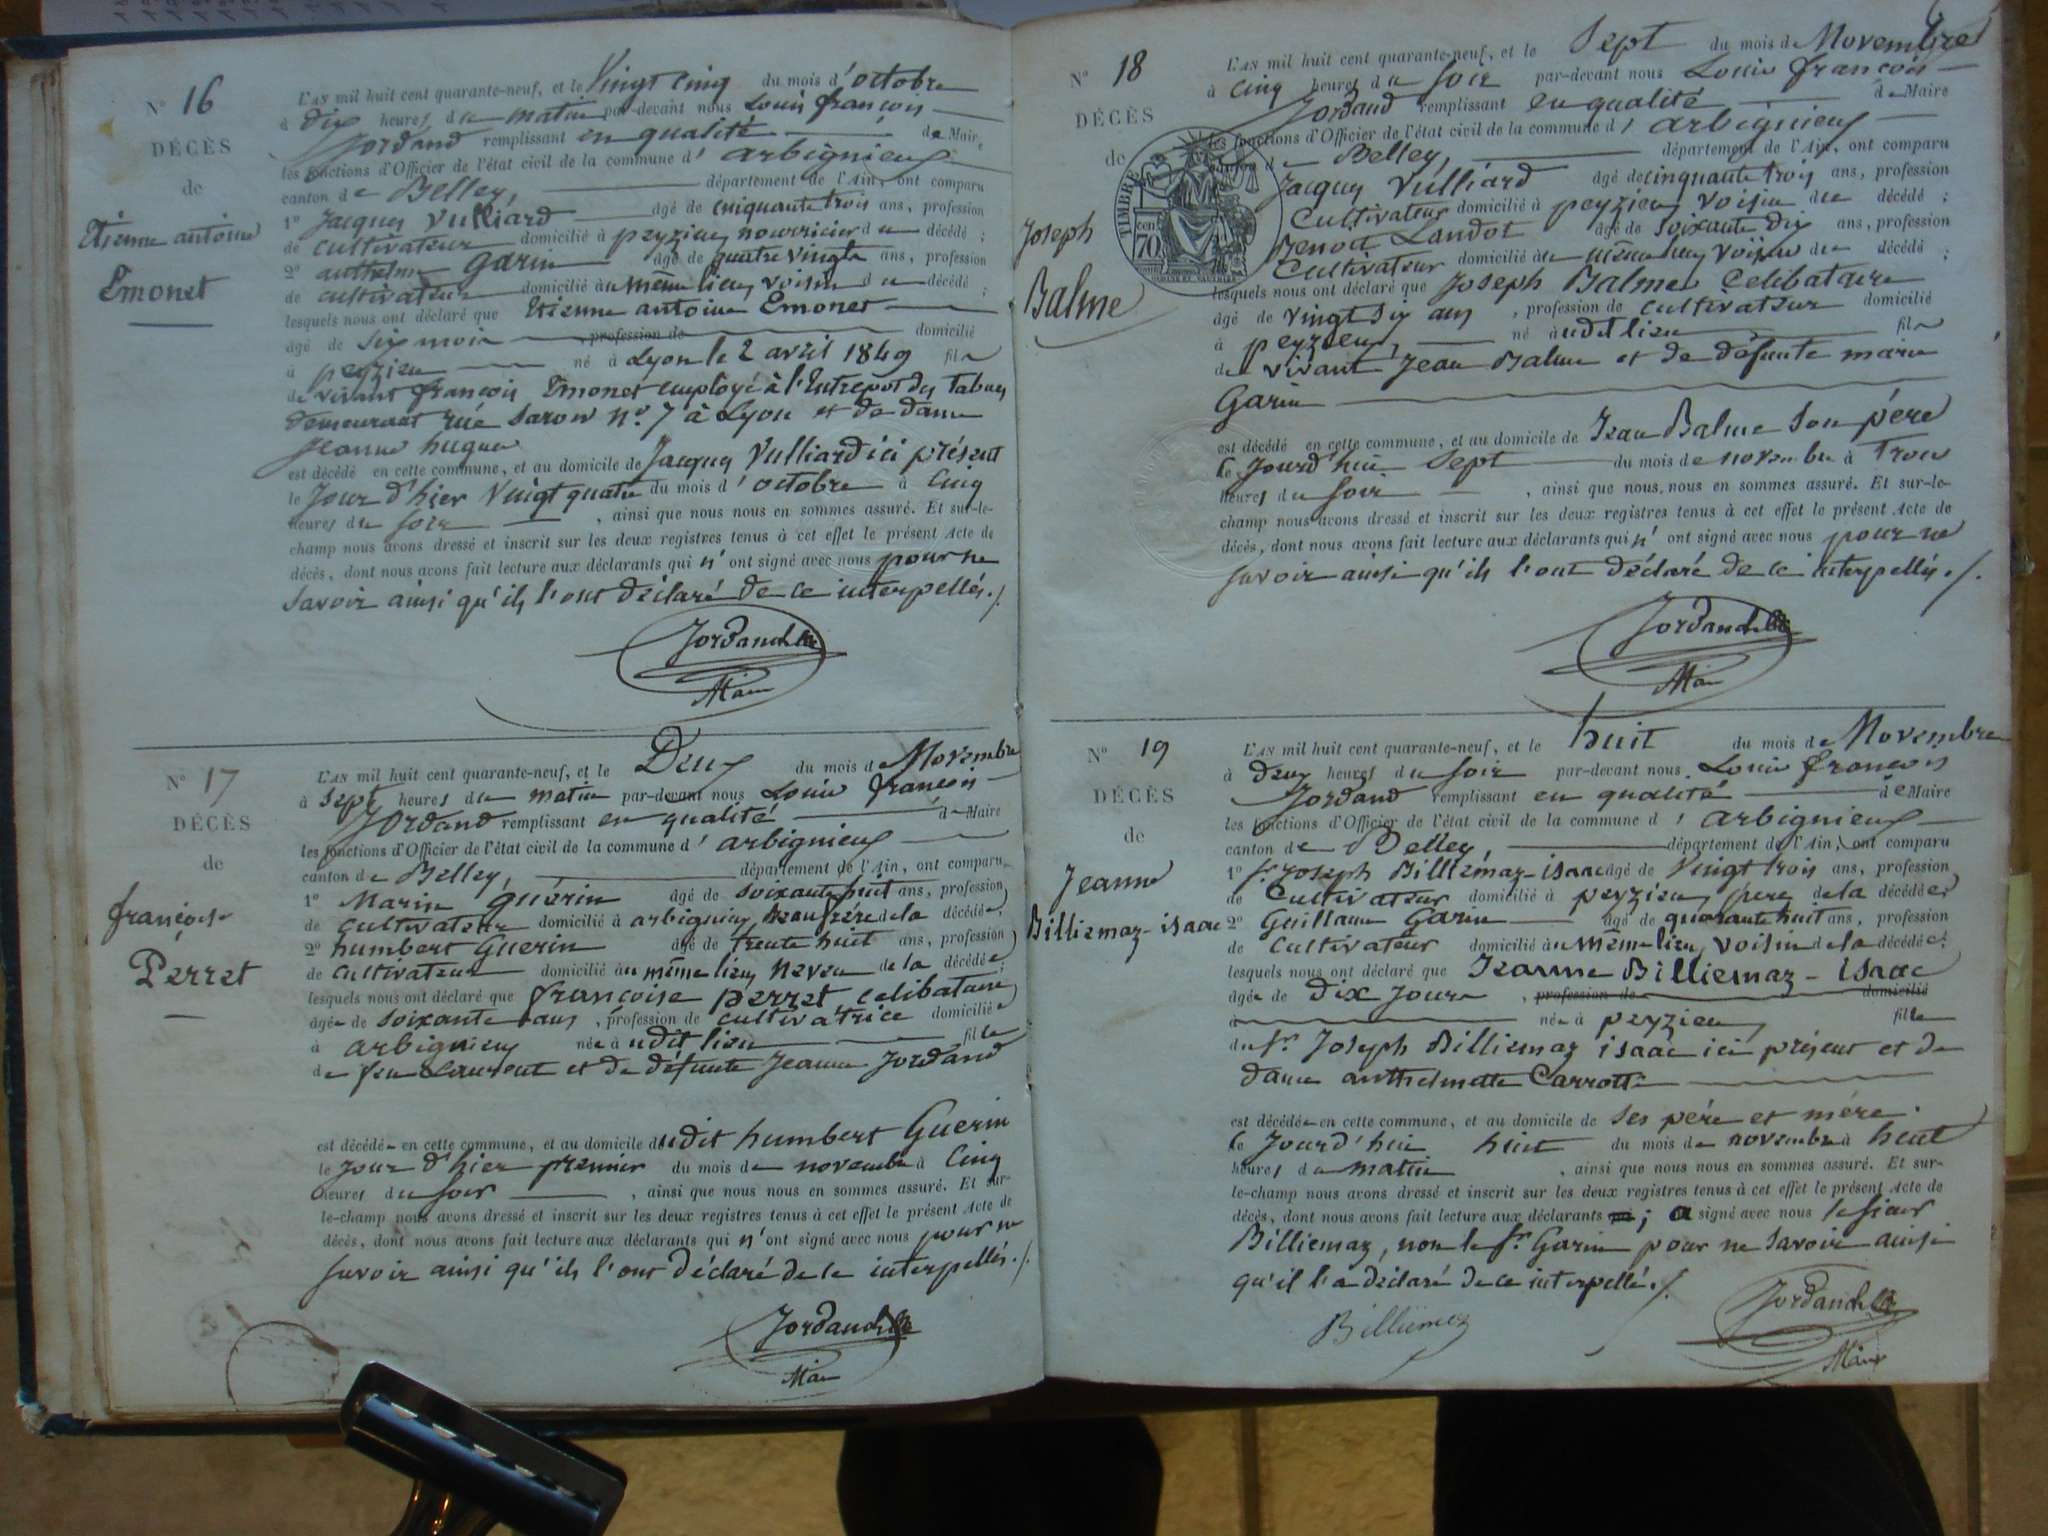 N° 16
DÉCÈS
de
Etienne antoine
Emonet
L'AN mil huit cent quarante-neuf, et le Vingt cinq du mois d'octobre
à dix heures du matin par-devant nous Louis françois
Jordand remplissant en qualité de Maire
les fonctions d'Officier de l'état civil de la commune d'arbignieux
canton de Belley, département de l'Ain, ont comparu
1° Jacques Vulliard âgé de cinquante trois ans, profession
de cultivateur domicilié à peyzieu nourricier du décédé;
2° anthelme Garin âgé de quatre vingts ans, profession
de cultivateur domicilié au même lieu, voisin du décédé;
lesquels nous ont déclaré que Etienne antoine Emonet
âgé de six mois profession de domicilié
à peyzieu né à Lyon le 2 avril 1849 fils
de vivant françois Emonet employé à l'Entrepot des tabacs
demeurant rüe Saron n° 7 à Lyon et de dame
Jeanne hugue
est décédé en cette commune, et au domicile de Jacques Vulliard ici présent
le Jour d'hier Vingt quatre du mois d'octobre à Cinq
heures du soir, ainsi que nous nous en sommes assuré. Et sur-le-
champ nous avons dressé et inscrit sur les deux registres tenus à cet effet le présent Acte de
décès, dont nous avons fait lecture aux déclarants qui n'ont signé avec nous pour ne
savoir ainsi qu'ils l'ont déclaré de ce interpellés./.
Jordand
Maire
N° 17
DÉCÈS
de
françoise
Perret
L'AN mil huit cent quarante-neuf, et le Deux du mois de Novembre
à sept heures du matin par-devant nous Louis françois
Jordand remplissant en qualité de Maire
les fonctions d'Officier de l'état civil de la commune d'arbignieux
canton de Belley, département de l'Ain, ont comparu
1° Marin Guérin âgé de soixante huit ans, profession
de cultivateur domicilié à arbignieux, beau frère de la décédée;
2° humbert Guerin âgé de trente huit ans, profession
de cultivateur domicilié au même lieu, Neveu de la décédée;
lesquels nous ont déclaré que françoise perret, celibataire
âgée de soixante ans, profession de cultivatrice domiciliée
à arbignieux née àudit lieu fille
de feu Laurent et de défunte Jeanne Jordand
est décédée en cette commune, et au domicile dudit humbert Guerin
le Jour d'hier premier du mois de novembre à Cinq
heures du soir, ainsi que nous nous en sommes assuré. Et sur-
le-champ nous avons dressé et inscrit sur les deux registres tenus à cet effet le présent Acte de
décès, dont nous avons fait lecture aux déclarants qui n'ont signé avec nous pour ne
savoir ainsi qu'ils l'ont déclaré de ce interpellés./.
Jordand
Maire
N° 18
DÉCÈS
de
Joseph
Balme
TIMBRE
70
L'AN mil huit cent quarante-neuf, et le Sept du mois de Novembre
à Cinq heures du soir par-devant nous Louis françois
Jordand remplissant en qualité de Maire
les fonctions d'Officier de l'état civil de la commune d'arbignieux
de Belley, département de l'Ain, ont comparu
Jacques Vulliard âgé de cinquante trois ans, profession
Cultivateur domicilié à peyzieu, voisin du décédé;
Benoit Landot âgé de soixante dix ans, profession
Cultivateur domicilié au même lieu, voisin du décédé;
lesquels nous ont déclaré que Joseph Balme, Celibataire
âgé de vingt six ans, profession de cultivateur domicilié
à peyzieu, né àudit lieu fils
de vivant Jean Balme et de défunte marie
Garin
est décédé en cette commune, et au domicile de Jean Balme son père
le Jourd'hui Sept du mois de novembre à Trois
heures du soir, ainsi que nous nous en sommes assuré. Et sur-le-
champ nous avons dressé et inscrit sur les deux registres tenus à cet effet le présent Acte de
décès, dont nous avons fait lecture aux déclarants qui n'ont signé avec nous pour ne
savoir ainsi qu'ils l'ont déclaré de ce interpellés./.
Jordand
Maire
N° 19
DÉCÈS
de
Jeanne
Billiemaz-isaac
L'AN mil huit cent quarante-neuf, et le huit du mois de Novembre
à deux heures du soir par-devant nous Louis françois
Jordand remplissant en qualité de Maire
les fonctions d'Officier de l'état civil de la commune d'arbignieux
canton de Belley, département de l'Ain, ont comparu
1° Sr Joseph Billiemaz-isaac âgé de Vingt trois ans, profession
de Cultivateur domicilié à peyzieu, pere de la décédée;
2° Guillaume Garin âgé de quarante huit ans, profession
de Cultivateur domicilié au même lieu, voisin de la décédée;
lesquels nous ont déclaré que Jeanne Billiemaz-isaac
âgée de dix Jours, profession de domicilié
à née à peyzieu, fille
du Sr Joseph Billiemaz isaac ici présent et de
dame anthelmette Carrotti
est décédée en cette commune, et au domicile de ses père et mère
le Jourd'hui huit du mois de novembre à huit
heures du matin, ainsi que nous nous en sommes assuré. Et sur-
le-champ nous avons dressé et inscrit sur les deux registres tenus à cet effet le présent Acte de
décès, dont nous avons fait lecture aux déclarants; a signé avec nous le sieur
Billiemaz, non le Sr Garin pour ne savoir ainsi
qu'il l'a déclaré de ce interpellé./.
Billiemaz
Jordand
Maire